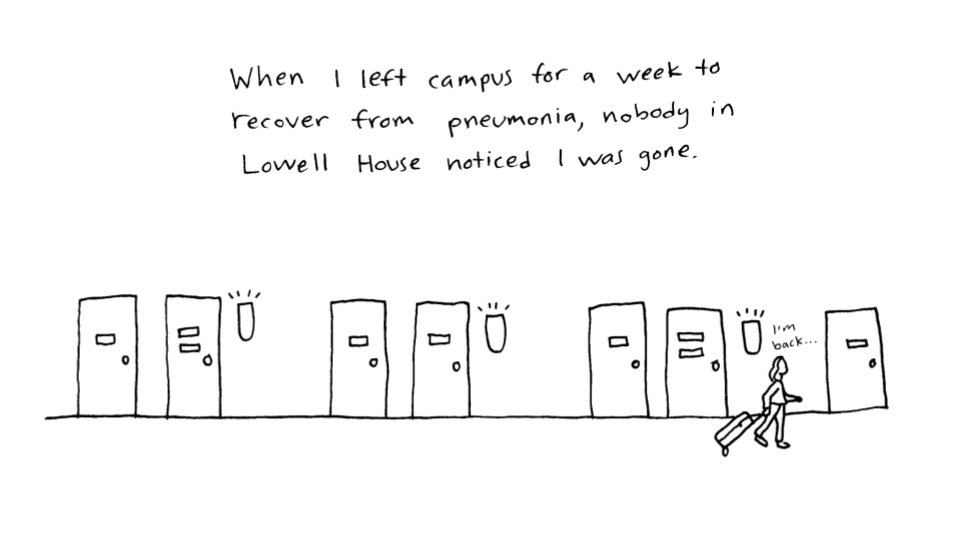 When I left campus for a week to
recover from pneumonia, nobody in
Lowell House noticed I was gone.
I'm
back...